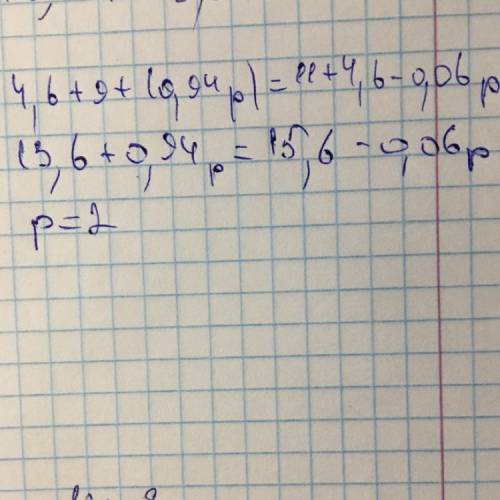 4,6+9+(0,94p)=11+4,6-0,06p
13,6+0,94p=15,6-0,06p
p=2